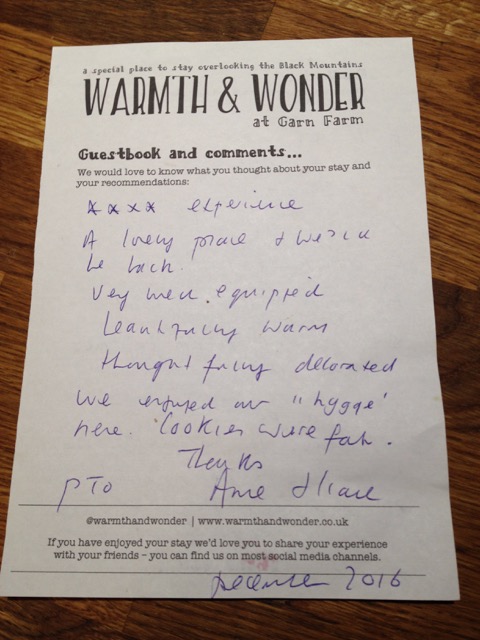 a special place to stay overlooking the Black Mountains
WARMTH & WONDER
at Garn Farm
Guestbook and comments...
We would love to know what you thought about your stay and
your recommendations:
**** experience
A lovely place & we'll
be back.
Very well equipped
Beautifully warm
thoughtfully decorated
we enjoyed our "hygge'
here. Cookies were fab.
Thanks
PTO Anne &
@warmthandwonder | www.warmthandwonder.co.uk
If you have enjoyed your stay we'd love you to share your experience
with your friends – you can find us on most social media channels.
December 2016